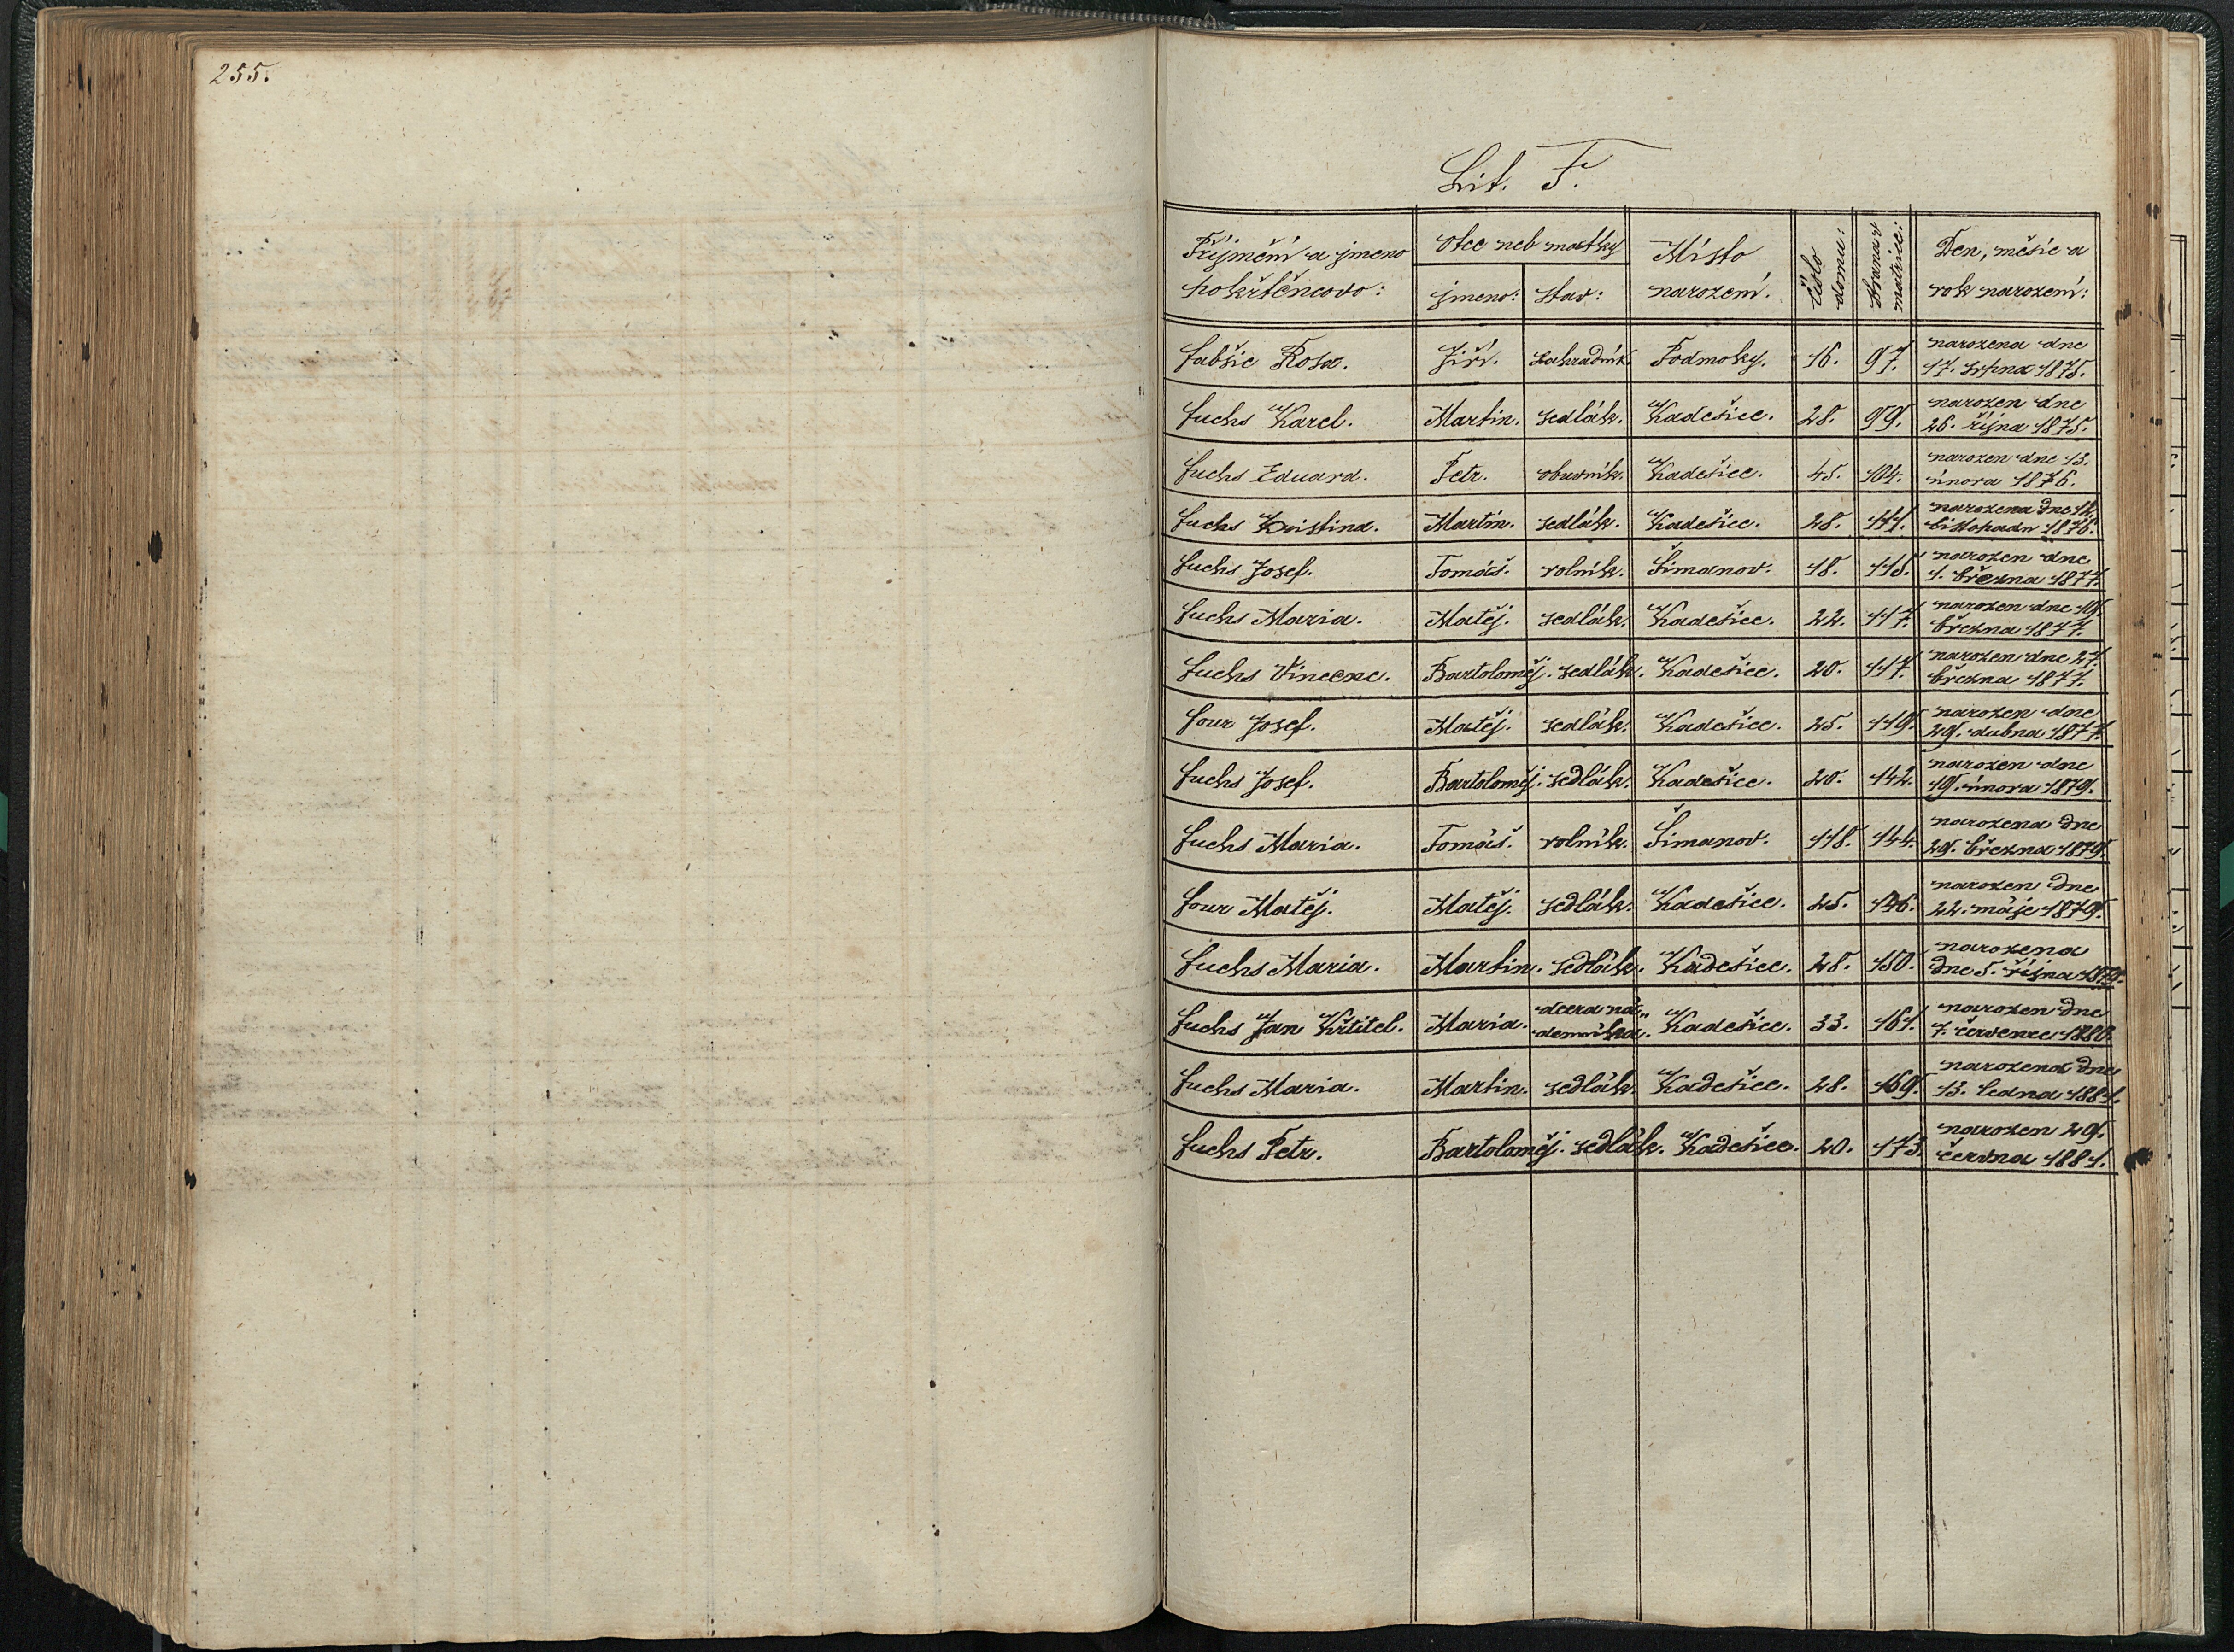 255.
Lit. F.
Příjmění a jmeno pokřtěncovo: Otec neb matky jmeno: stav: Místo narození. Číslo domu: Strana matrice: Den, měsíc a rok narození:
Fabšic Rosa. Jiří. zahradník Podmoky. 16. 97. narozena dne
17. srpna 1875.
Fuchs Karel. Martin. sedlák. Kadešice. 28. 99. narozen dne
26. října 1875.
Fuchs Eduard. Petr. obuvník. Kadešice. 45. 104. narozen dne 13.
února 1876.
Fuchs Kristina. Martin. sedlák. Kadešice. 28. 111. narozena dne 12.
listopadu 1876.
Fuchs Josef. Tomáš. rolník. Šimanov. 18. 115. narozen dne
1. března 1877.
Fuchs Maria. Matěj. sedlák. Kadešice. 22. 117. narozen dne 19.
března 1877.
Fuchs Vincenc. Bartoloměj. sedlák. Kadešice. 20. 117. narozen dne 27.
března 1877.
Four Josef. Matěj. sedlák. Kadešice. 25. 119. narozen dne
29. dubna 1877.
Fuchs Josef. Bartoloměj. sedlák. Kadešice. 20. 142. narozen dne
19. února 1879.
Fuchs Maria. Tomáš. rolník. Šimanov. 118. 144. narozena dne
29. března 1879.
Four Matěj. Matěj. sedlák. Kadešice. 25. 146. narozen dne
22. máje 1879.
Fuchs Maria. Martin. sedlák. Kadešice. 28. 150. narozena
dne 5. října 1879.
Fuchs Jan Křtitel. Maria. dcera ná„
demníka. Kadešice. 33. 161. narozen dne
7. července 1880.
Fuchs Maria. Martin. sedlák. Kadešice. 28. 169. narozena dne
13. ledna 1881.
Fuchs Petr. Bartoloměj. sedlák. Kadešice. 20. 173. narozen 29.
června 1881.